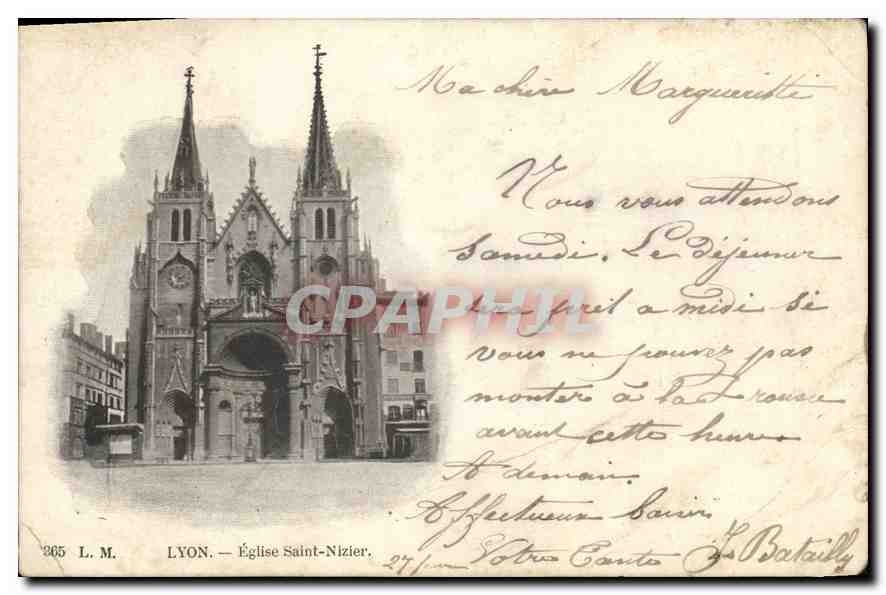 Ma chère Marguerithe
Nous vous attendons
Samedi. Le déjeuner
sera prêt a midi Si
vous ne pouvez pas
monter à la rousse
avant cette heure
A demain.
Affectueux baisers
27 Votre Tante J. Batailly
CPArama.com
365 L. M. LYON. — Église Saint-Nizier.